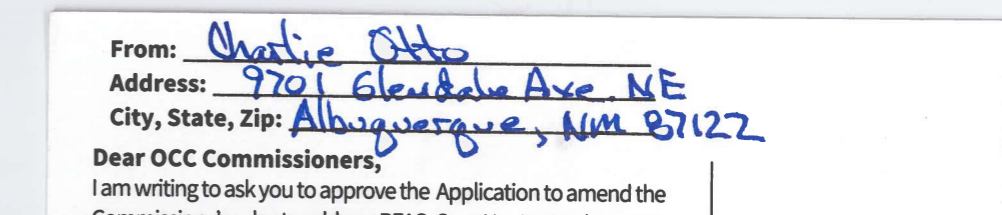 From: Charlie Otto
Address: 9701 Glendale Ave. NE
City, State, Zip: Albuquerque, NM 87122
Dear OCC Commissioners,
I am writing to ask you to approve the Application to amend the